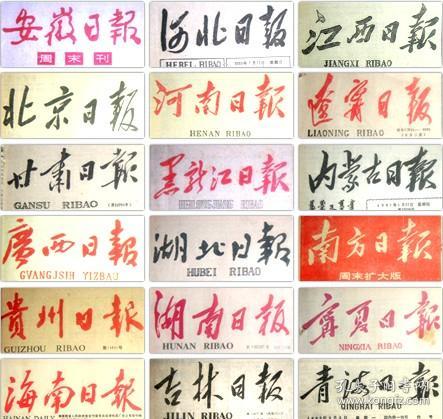 安徽日報
周末刊
河北日报
HEBEI RIBAO
江西日报
JIANGXI RIBAO
北京日报
河南日報
HENAN RIBAO
遼寧日报
LIAONING RIBAO
甘肃日报
GANSU RIBAO
黑龙江日报
HEILONGJIANG RIBAO
内蒙古日報
廣西日報
GVANGJSIH YIZBAU
湖北日報
HUBEI RIBAO
南方日报
周末扩大版
贵州日报
GUIZHOU RIBAO
湖南日报
HUNAN RIBAO
宁夏日报
NINGXIA RIBAO
海南日報
HAINAN DAILY
吉林日报
JILIN RIBAO
青海日报
QINGHAI RIBAO
孔夫子旧书网